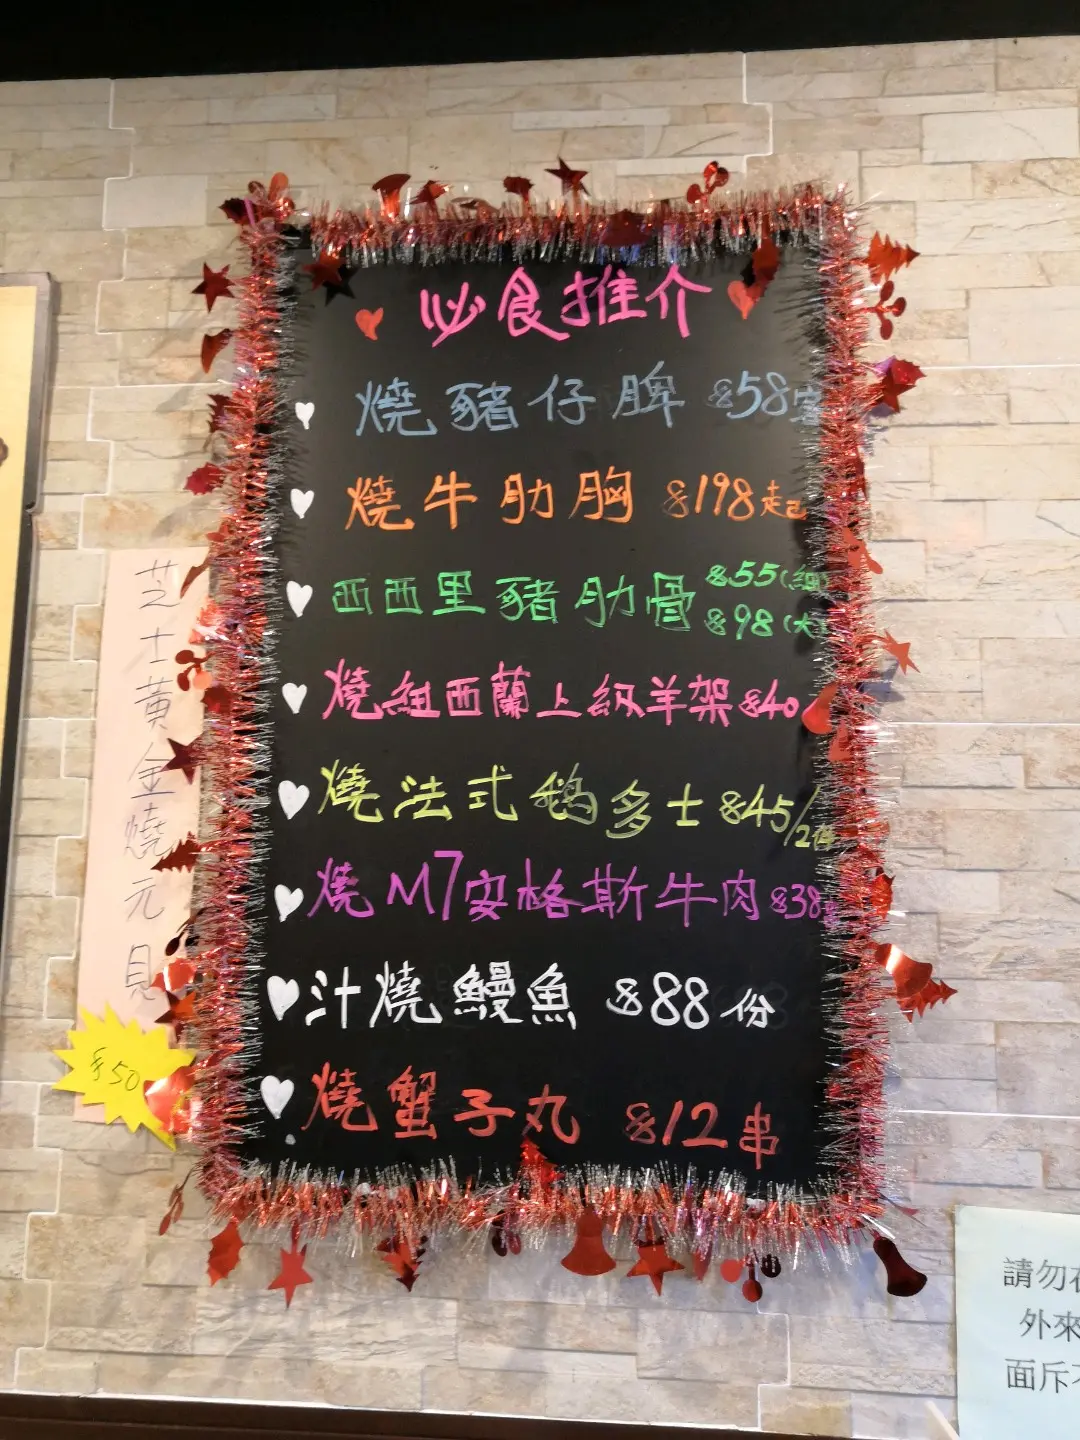 必食推介
燒豬仔髀 $58
燒牛肋胸 $198走起
西西里豬肋骨 $55(細)
$98(大)
燒紐西蘭上級羊架 $40
燒法式鵝多士 $45/2件
燒M7安格斯牛肉 $38
汁燒鰻魚 $88份
燒蟹子丸 $12串
芝士黃金燒元貝
$50
請勿在
外來
面斥不